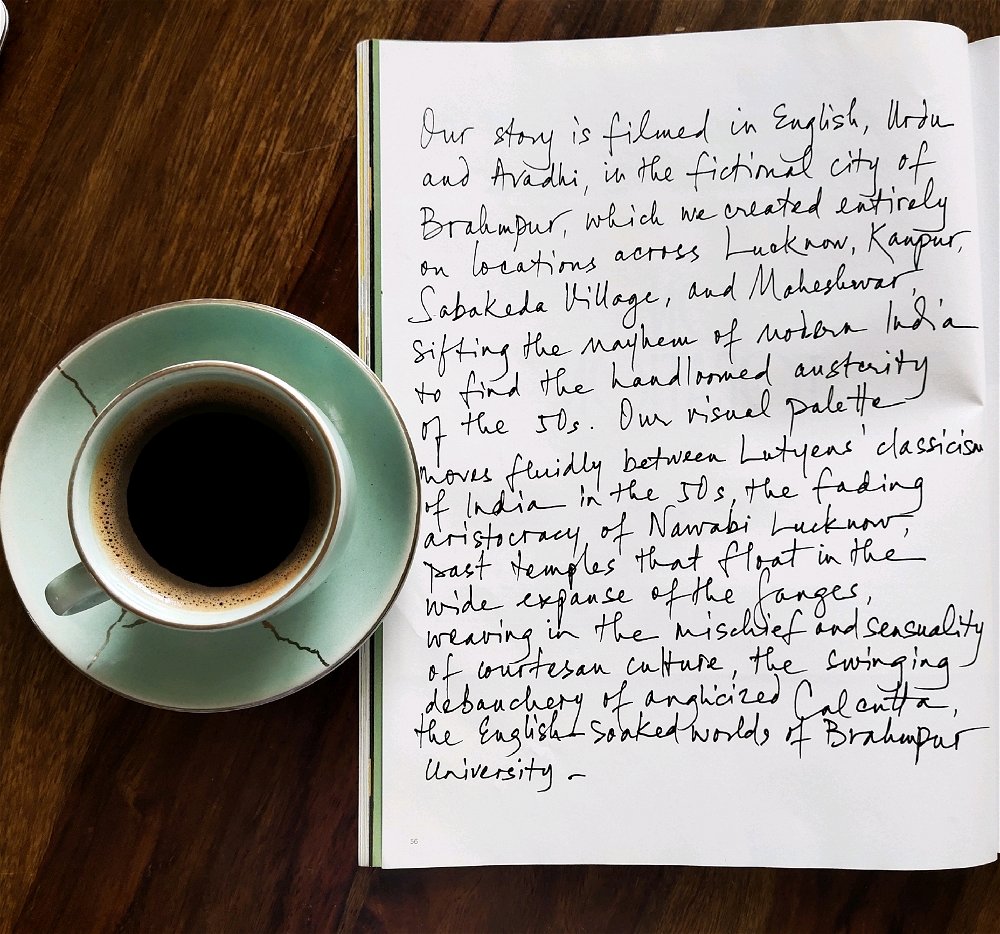 Our story is filmed in English, Urdu
and Avadhi, in the fictional city of
Brahmpur, which we created entirely
on locations across Lucknow, Kanpur,
Sabakeda Village, and Maheshwar,
sifting the mayhem of modern India
to find the handloomed austerity
of the 50s. Our visual palette
moves fluidly between Lutyens' classicism
of India in the 50s, the fading
aristocracy of Nawabi Lucknow,
past temples that float in the
wide expanse of the Ganges,
weaving in the mischief and sensuality
of courtesan culture, the swinging
debauchery of anglicized Calcutta,
the English-soaked worlds of Brahmpur
University -
56